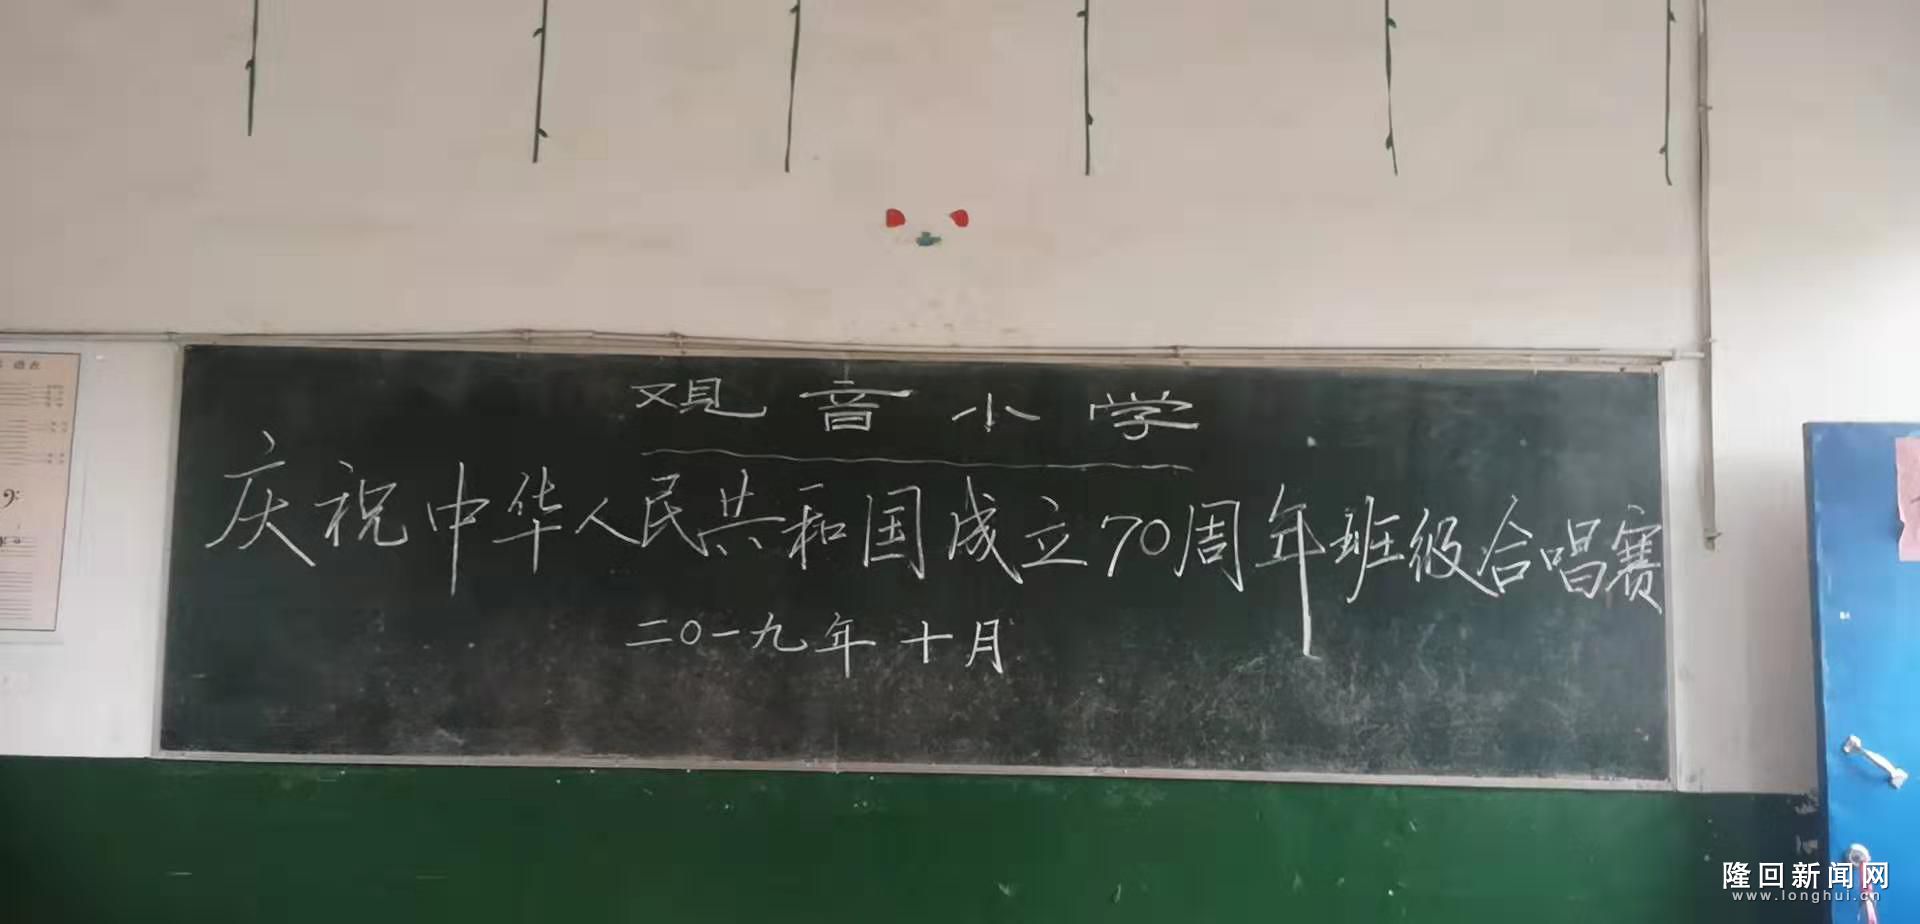 观音小学
庆祝中华人民共和国成立70周年班级合唱赛
二〇一九年十月
隆回新闻网
www.longhui.cn